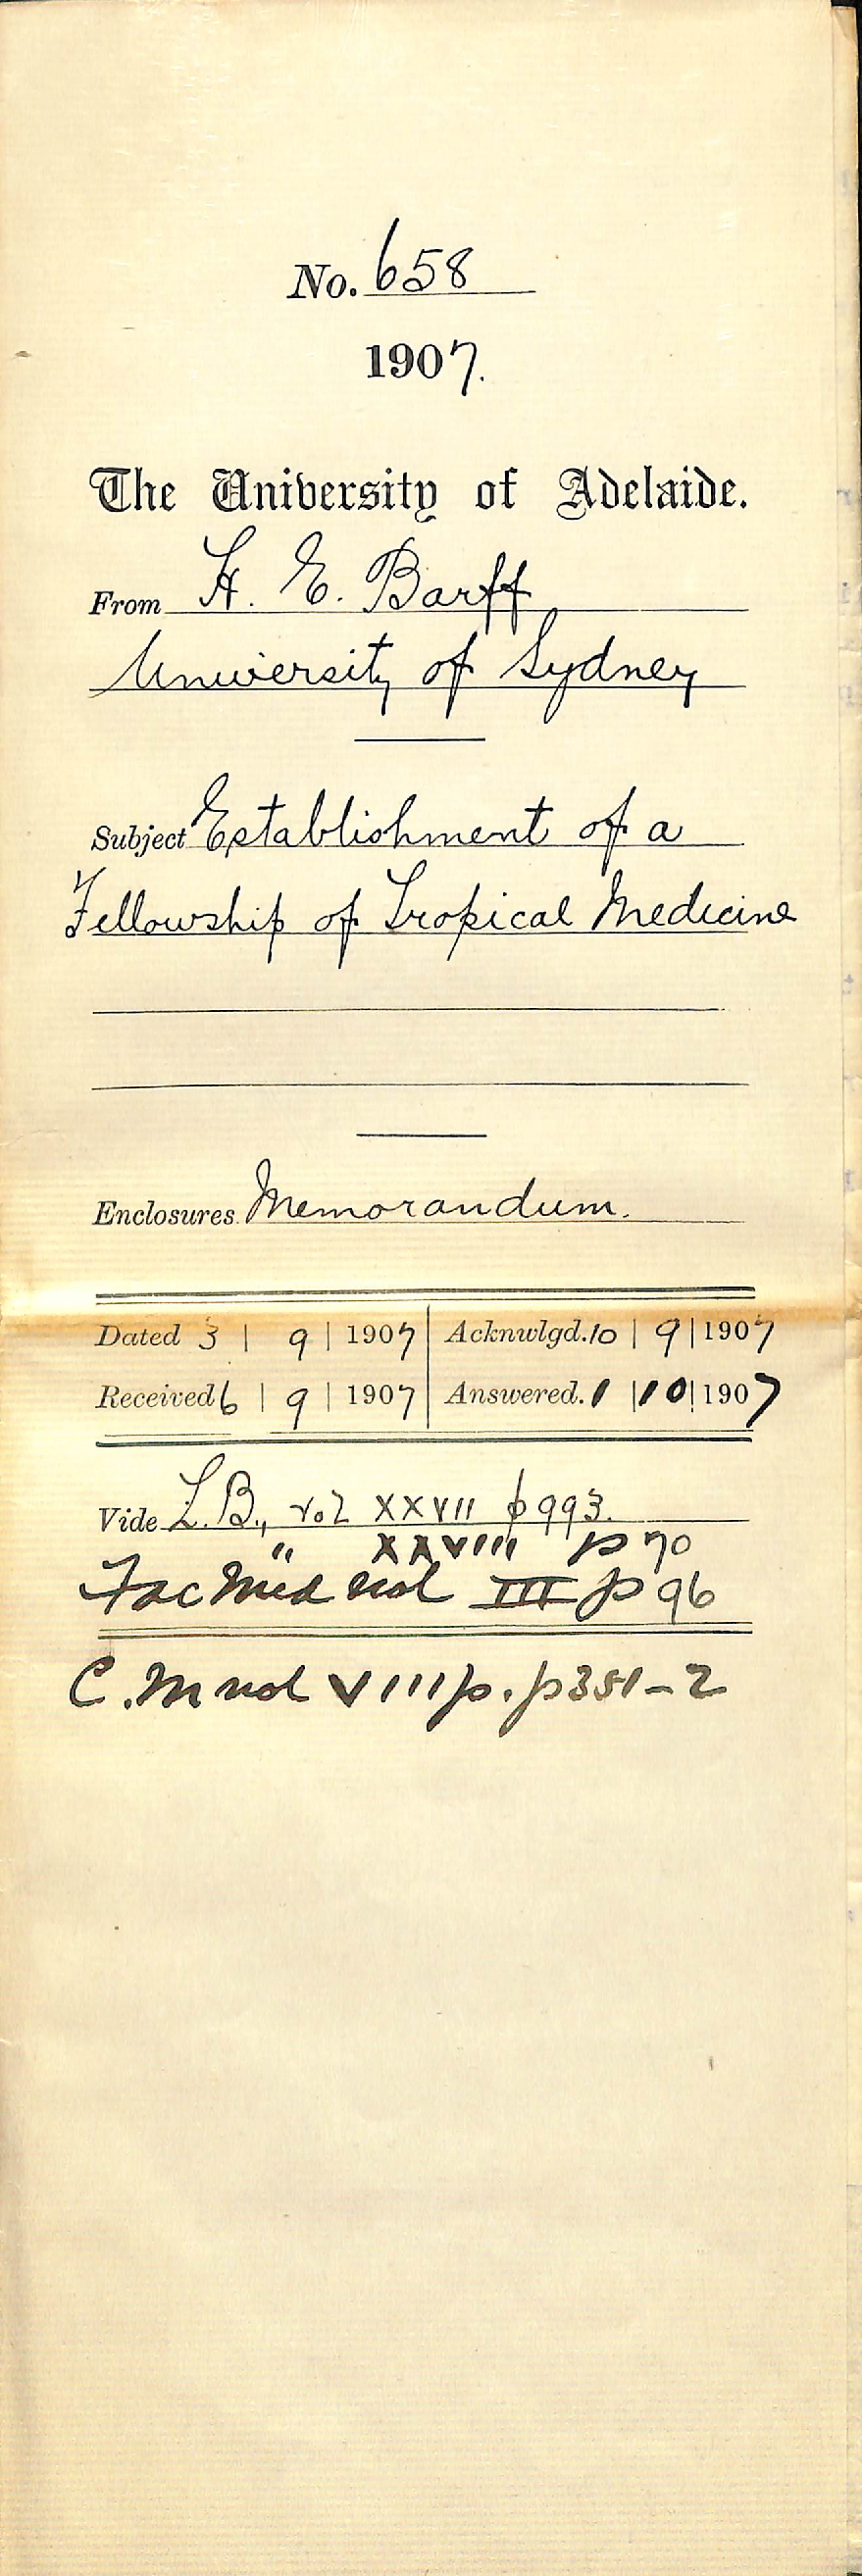 No. 658
1907.
The University of Adelaide.
From H. E. Barff
University of Sydney
Subject Establishment of a
Fellowship of Tropical Medicine
Enclosures Memorandum.
Dated 3 | 9 | 1907 | Acknwlgd. 10 | 9 | 1907
Received 6 | 9 | 1907 | Answered. 1 | 10 | 1907
Vide L.B., vol XXVII p 993.
" XXVIII p 70
Fac Med vol III p 96
C. M vol VIII p. p 351-2